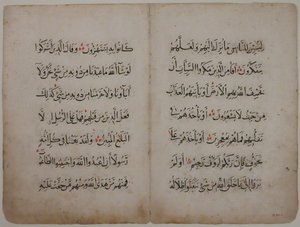 لتبين للناس ما نزل اليهم ولعلهم
يتفكرون افامن الذين مكروا السيئات ان
يخسف الله بهم الارض او يأتيهم العذاب
من حيث لا يشعرون او يأخذهم في
تقلبهم فما هم بمعجزين او يأخذهم على
تخوف فان ربكم لرؤف رحيم اولم
يروا الى ما خلق الله من شئ يتفيؤا ظلاله
كانوا به يستهزؤن وقال الذين اشركوا
لو شا الله ما عبدنا من دونه من شئ نحن ولا
اباؤنا ولا حرمنا من دونه من شئ كذلك
فعل الذين من قبلهم فهل على الرسل الا
البلاغ المبين ولقد بعثنا في كل امة
رسولا ان اعبدوا الله واجتنبوا الطاغوت
فمنهم من هدى الله ومنهم من حقت عليه